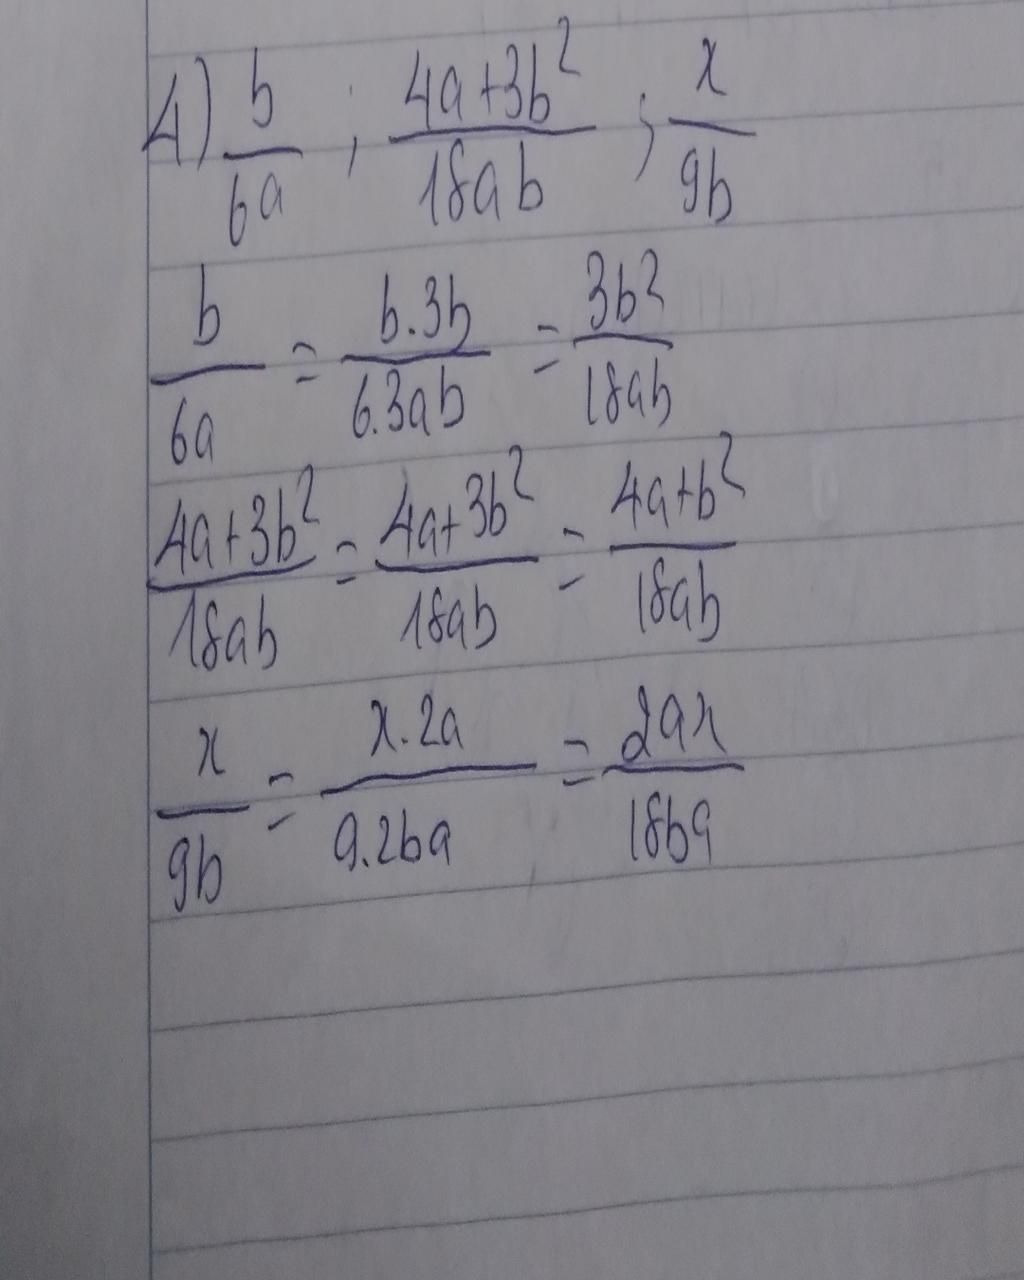 4) b/6a ; 4a+3b²/18ab ; x/9b
b/6a = b.3b/6.3ab = 3b²/18ab
4a+3b²/18ab = 4a+3b²/18ab = 4a+b²/18ab
x/9b = x.2a/9.2ba = 2ax/18ba